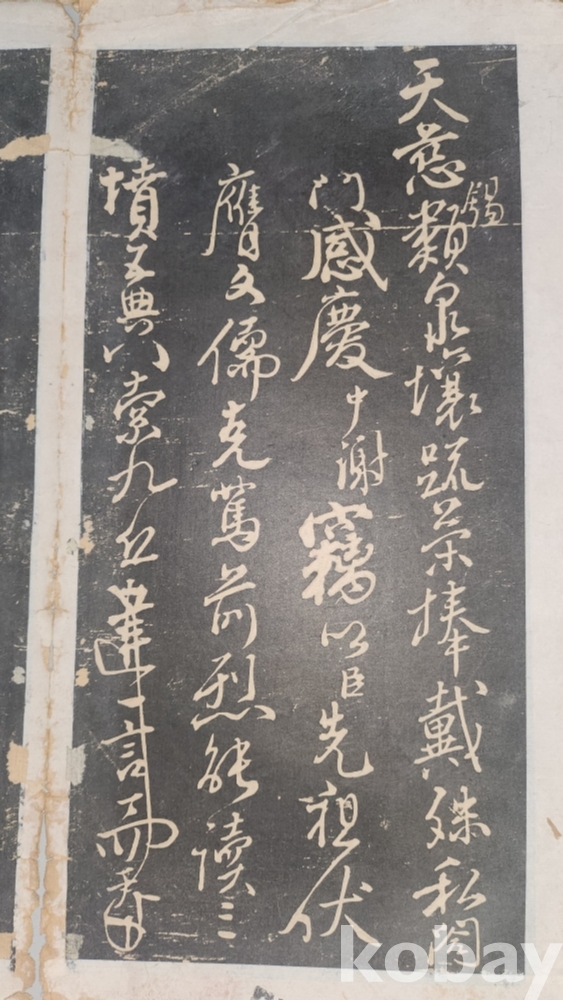 天慈錫類泉壤疏榮捧戴殊私闔
門感慶中謝竊以臣先祖伏
膺文儒克篤前烈能讀三
墳五典八索九丘
kobay